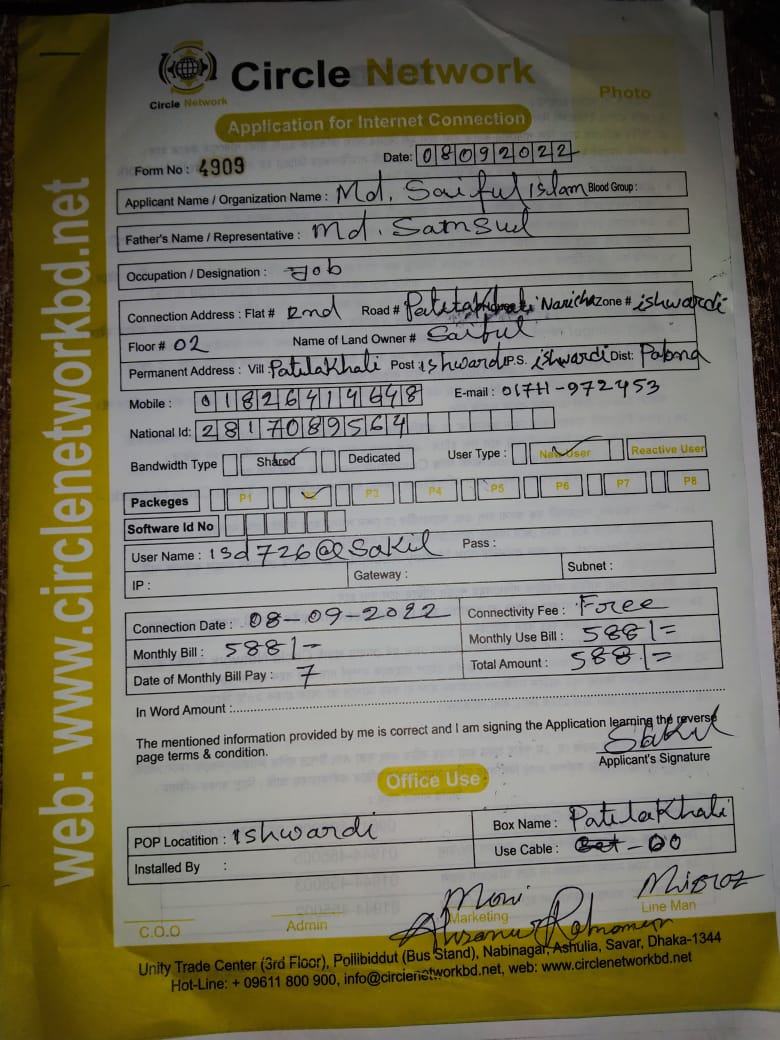 Circle Network
Circle Network
Photo
Application for Internet Connection
Form No : 4909
Date: 08092022
Applicant Name / Organization Name : Md. Saiful islam Blood Group :
Father's Name / Representative : Md. Samsul
Occupation / Designation : Job
Connection Address : Flat # 2nd Road # Zone # ishwardi
Floor # 02 Name of Land Owner # Saiful
Permanent Address : Vill Patilakhali Post ishwardi P.S. ishwardi Dist: Pabna
Mobile : 01826414648 E-mail : 01711-972453
National Id: 2817089564
Bandwidth Type Shared Dedicated User Type : New User Reactive User
Packeges P1 P2 P3 P4 P5 P6 P7 P8
Software Id No
User Name : isd726@Sakil Pass :
IP : Gateway : Subnet :
Connection Date : 08-09-2022 Connectivity Fee : Free
Monthly Bill : 588/- Monthly Use Bill : 588/=
Date of Monthly Bill Pay : 7 Total Amount : 588/=
In Word Amount :
The mentioned information provided by me is correct and I am signing the Application learning the reverse
page terms & condition.
Sakil
Applicant's Signature
Office Use
POP Locatition : Ishwardi Box Name : Patilakhali
Installed By : Use Cable : - 00
Moni
C.O.O Admin Marketing Line Man
Unity Trade Center (3rd Floor), Pollibiddut (Bus Stand), Nabinagar, Ashulia, Savar, Dhaka-1344
Hot-Line: + 09611 800 900, info@circlenetworkbd.net, web: www.circlenetworkbd.net
web: www.circlenetworkbd.net